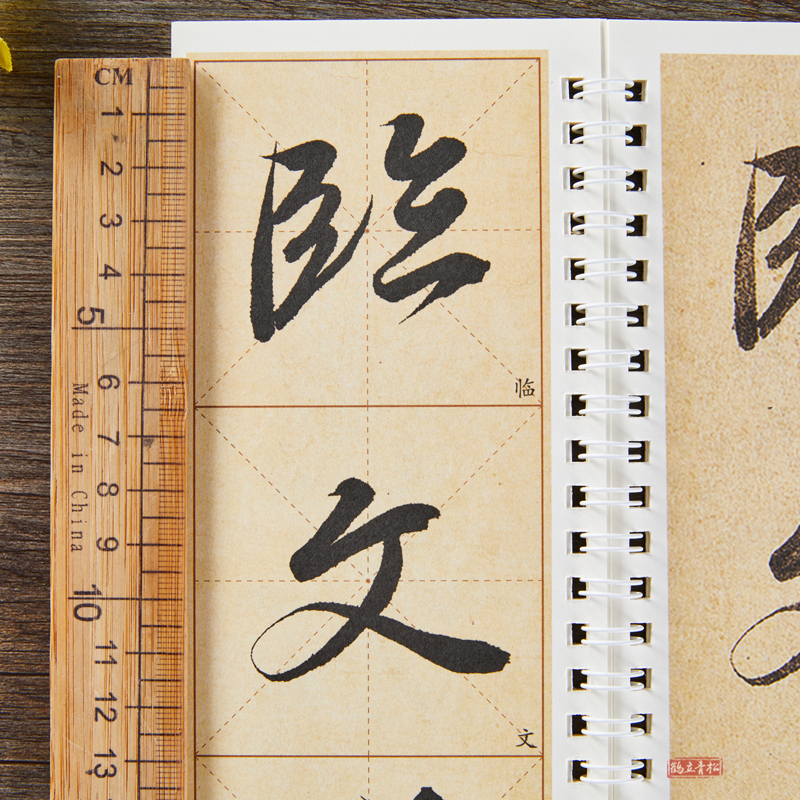 CM
1
2
3
4
5
6
7
8
9
10
11
12
13
Made in China
臨
临
文
文
鹤立青松